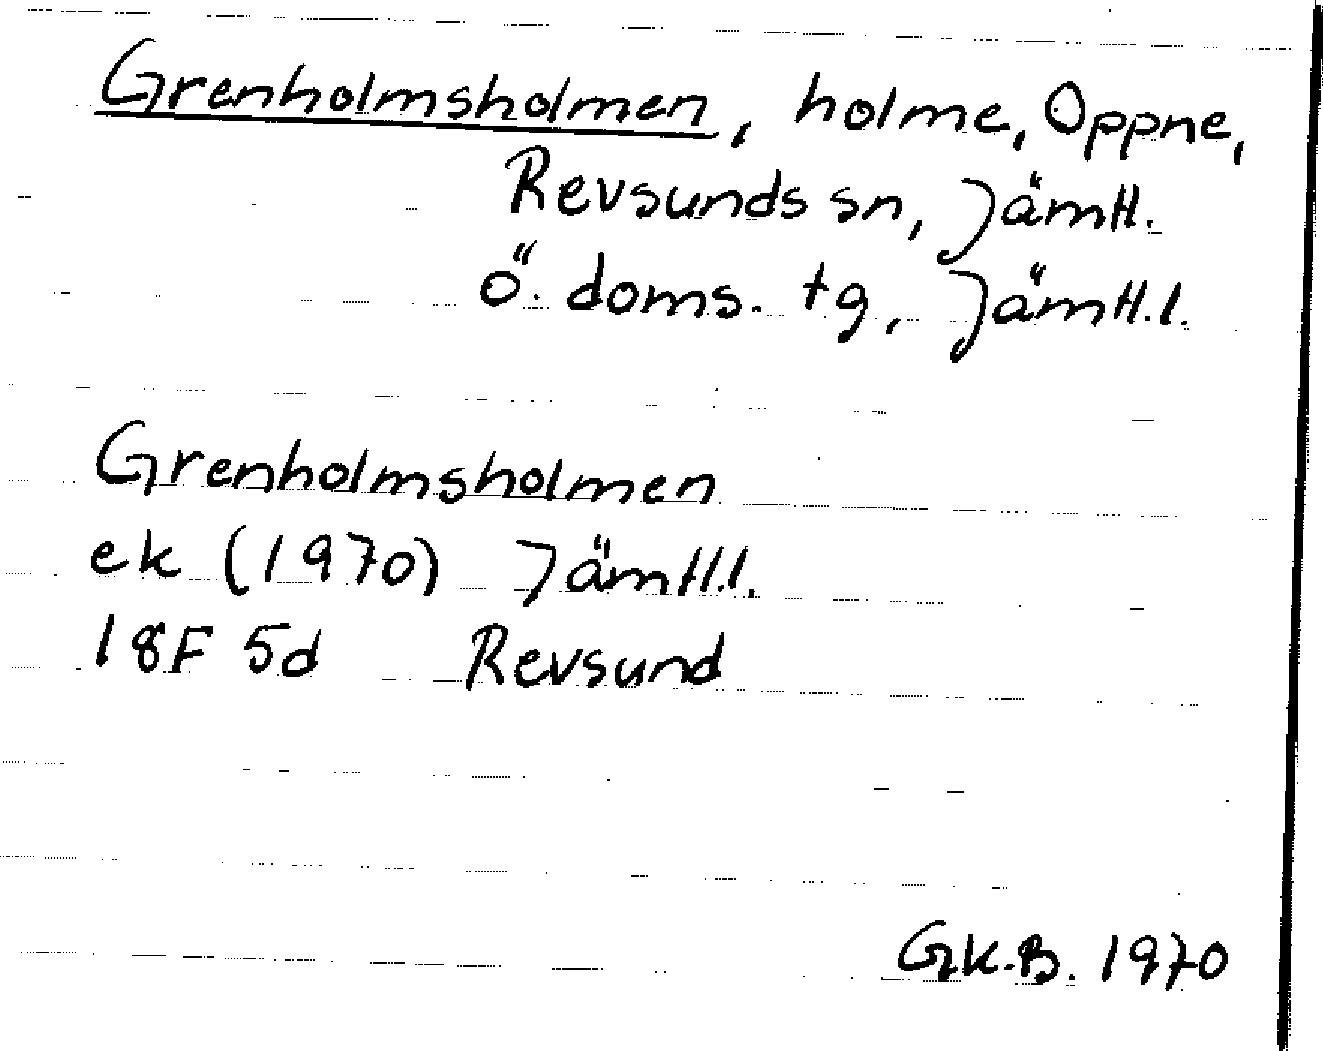 Grenholmsholmen, holme, Oppne,
Revsunds sn, Jämtl.
ö. doms. tg, Jämtl.l.
Grenholmsholmen
ek (1970) Jämtl.l.
18F 5d Revsund
GK.B. 1970